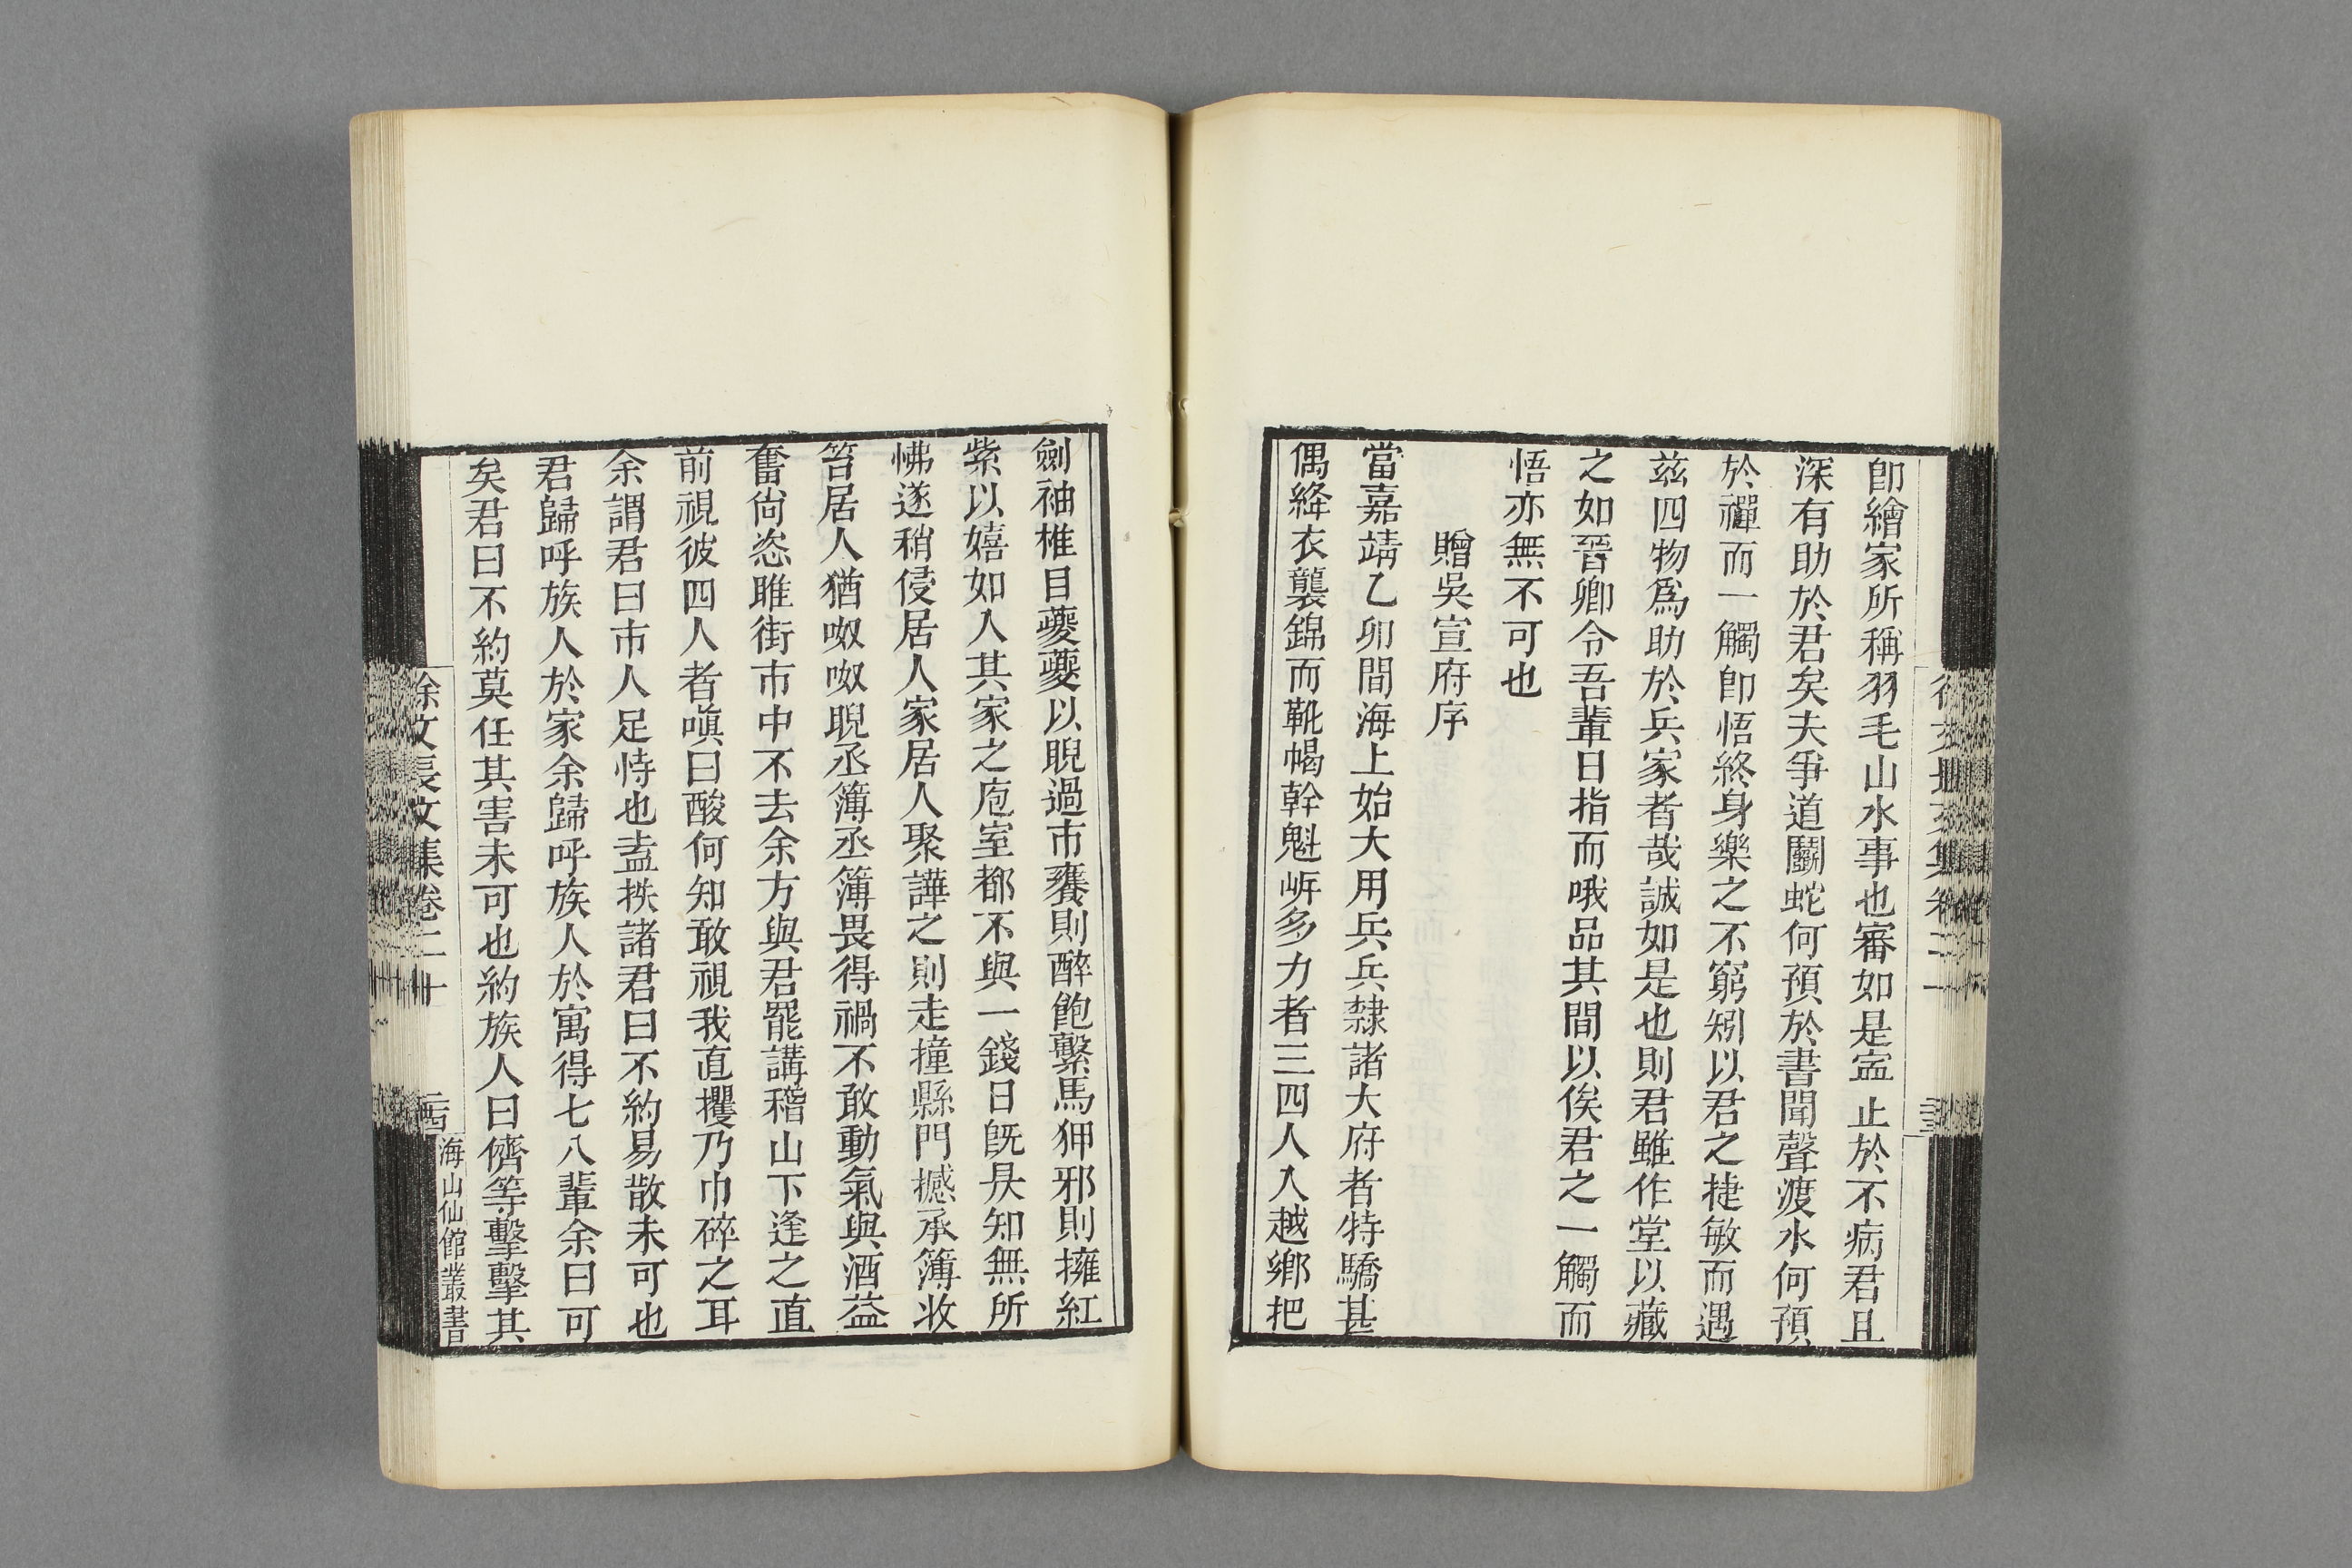 卽繪家所稱羽毛山水事也審如是寍止於不病君且
深有助於君矣夫爭道鬭蛇何預於書聞聲渡水何預
於禪而一觸卽悟終身樂之不窮矧以君之捷敏而遇
兹四物爲助於兵家者哉誠如是也則君雖作堂以藏
之如晉卿令吾輩日指而哦品其間以俟君之一觸而
悟亦無不可也
贈吳宣府序
當嘉靖乙卯間海上始大用兵兵隸諸大府者特驕甚
偶絳衣襲錦而靴幘幹魁岸多力者三四人入越鄉把
劍袖椎目夔夔以睨過市饔則醉飽繫馬狎邪則擁紅
紫以嬉如入其家之庖室都不與一錢日旣昃知無所
怫遂稍侵居人家居人聚譁之則走撞縣門撼承簿收
笞居人猶呶呶睨丞簿丞簿畏得禍不敢動氣與酒益
奮尙恣睢街市中不去余方與君罷講稽山下逢之直
前視彼四人者嗔曰酸何知敢視我直攫乃巾碎之耳
余謂君曰市人足恃也盍挾諸君曰不約易散未可也
君歸呼族人於家余歸呼族人於寓得七八輩余曰可
矣君曰不約莫任其害未可也約族人曰儕等擊擊其
徐文長文集卷二十
二四
海山仙館叢書